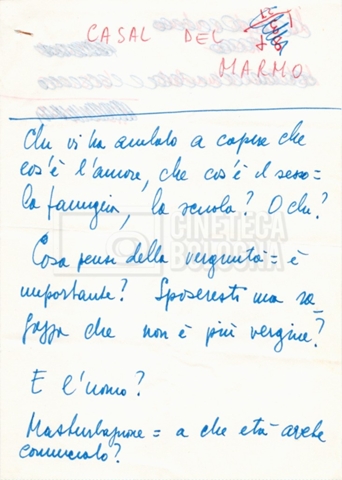 CASAL DEL
MARMO
Chi vi ha aiutato a capire che
cos'è l'amore, che cos'è il sesso =
la famiglia, la scuola? O chi?
CINETECA
BOLOGNA
Cosa pensi della verginità = è
importante? Sposeresti una ra=
gazza che non è più vergine?
E l'uomo?
Masturbazione = a che età avete
cominciato?